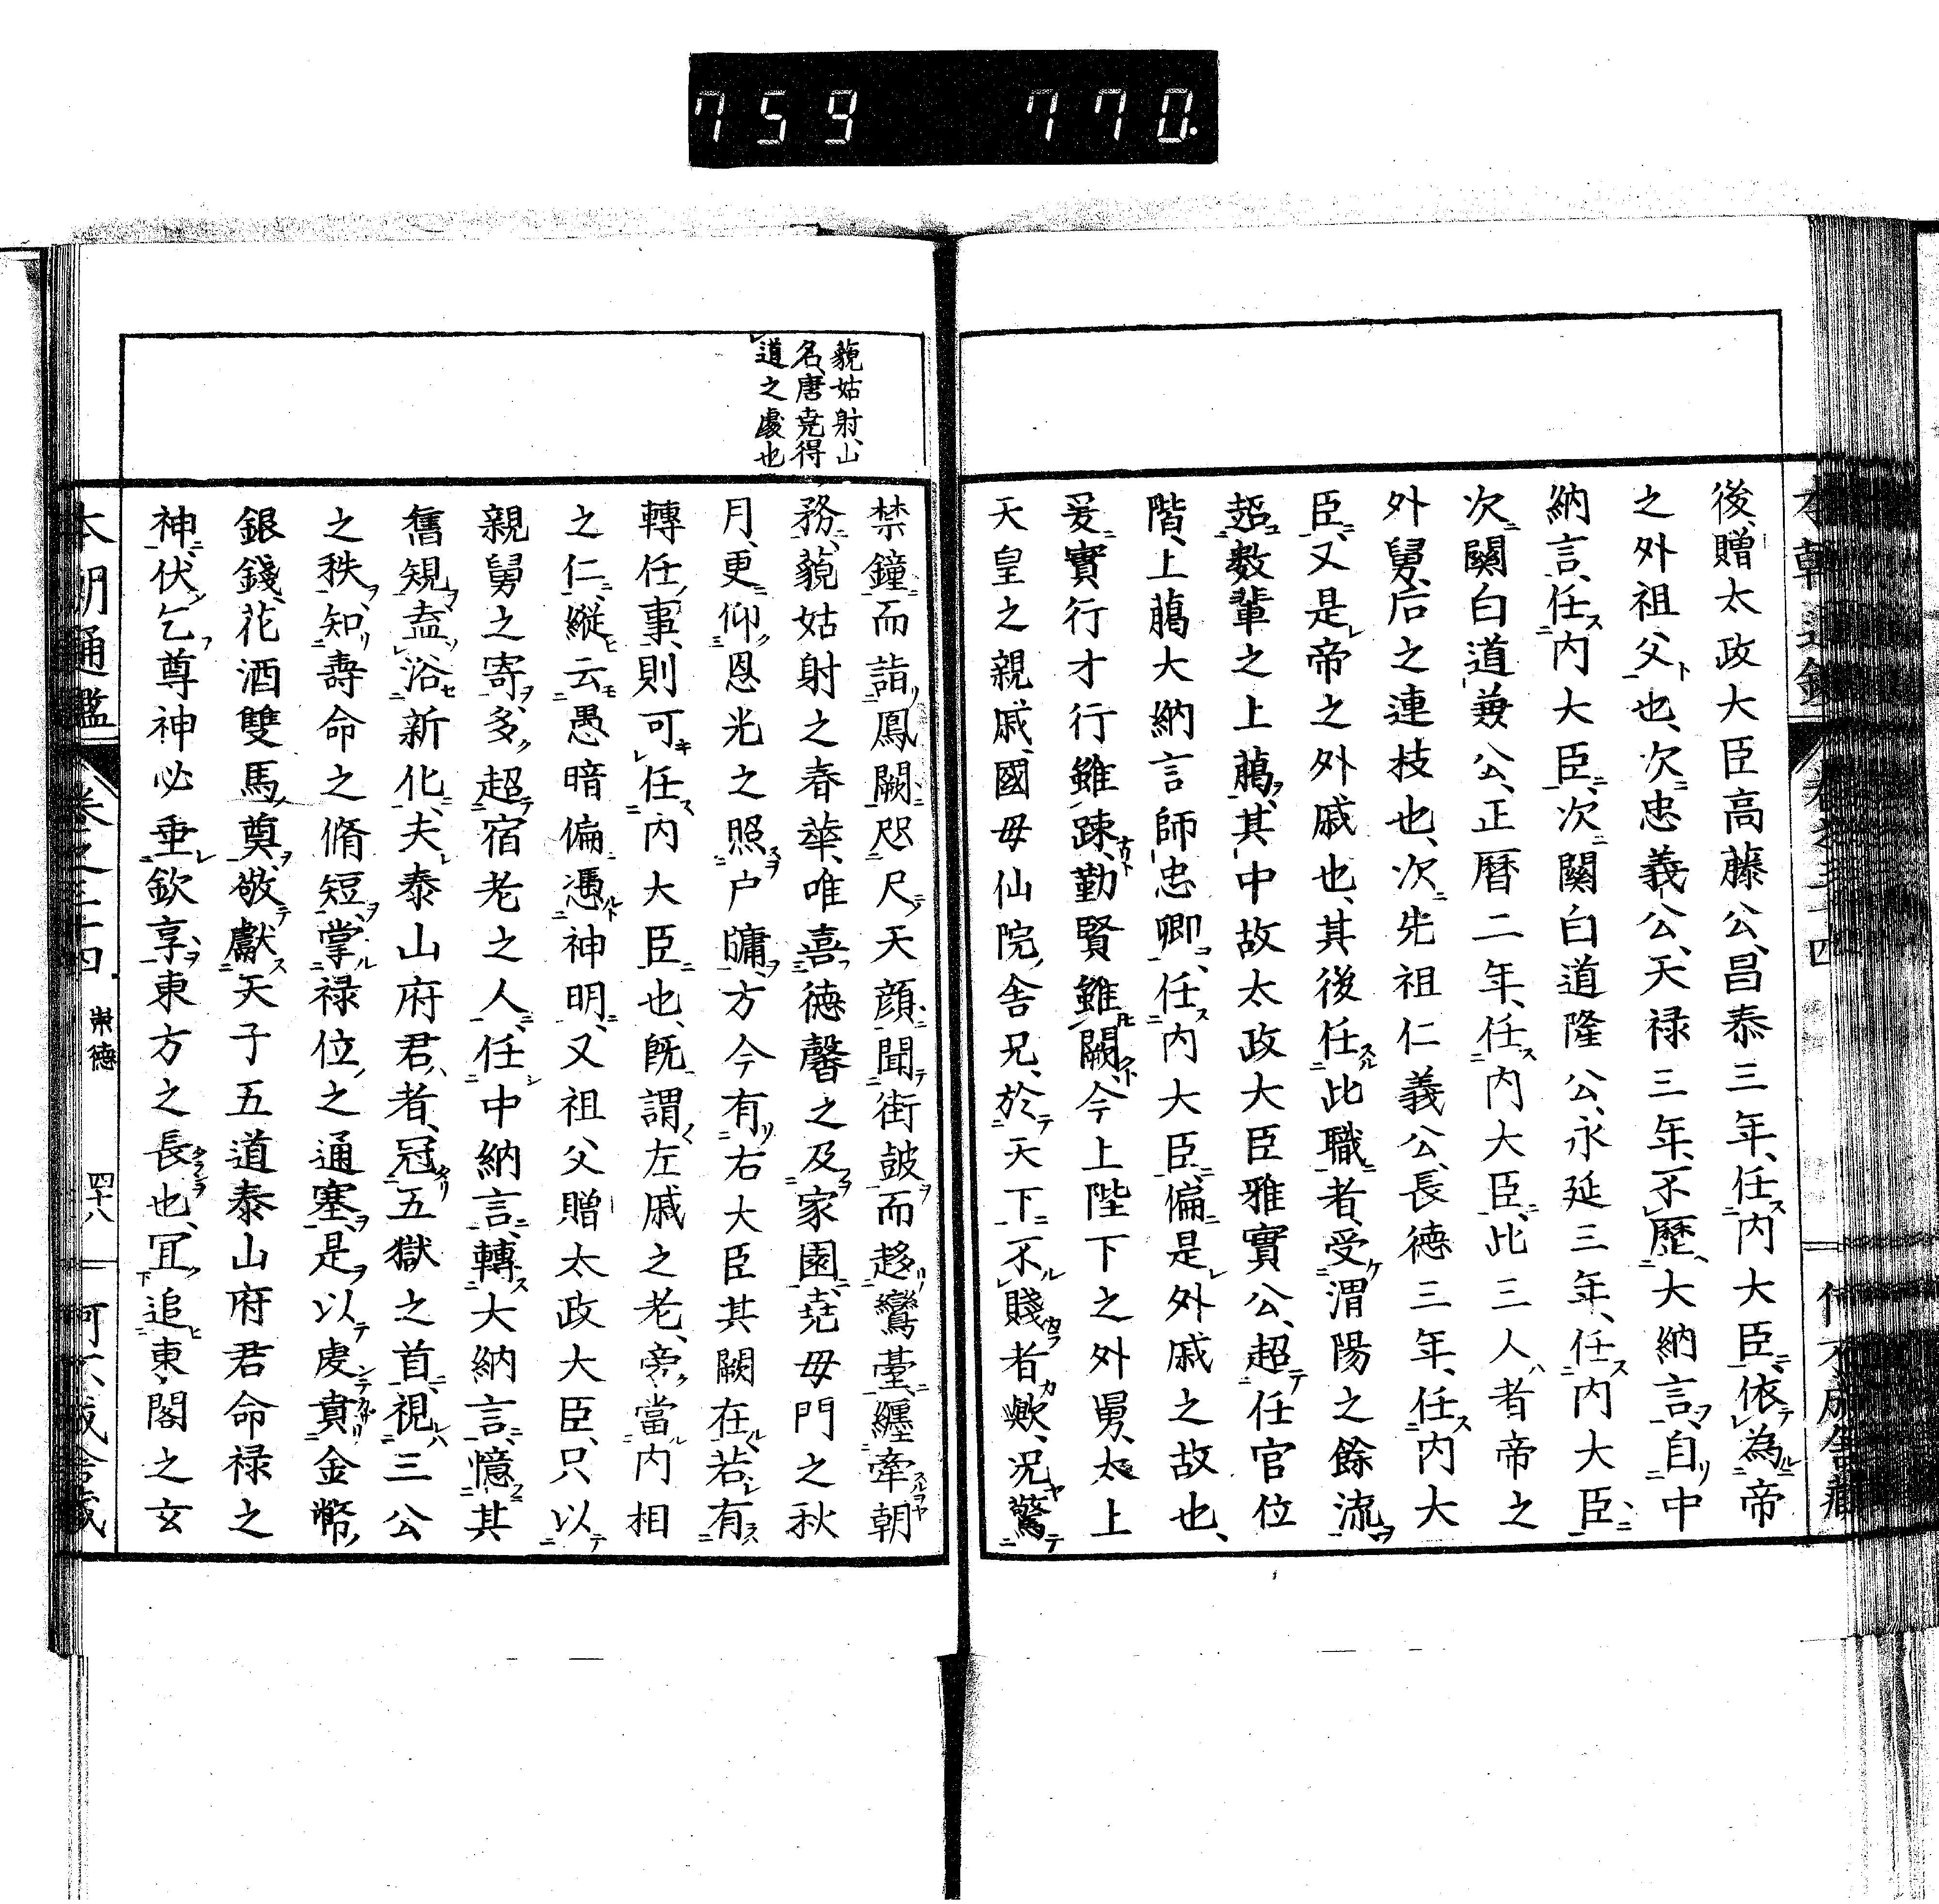 759 770.
後、贈太政大臣高藤公、昌泰三年、任内大臣、依為帝
之外祖父也、次忠義公、天禄三年、不歴大納言、自中
納言、任内大臣、次關白道隆公、永延三年、任内大臣、
次關白道兼公、正曆二年、任内大臣、此三人者帝之
外舅、后之連枝也、次先祖仁義公、長德三年、任内大
臣、又是帝之外戚也、其後任此職者、受渭陽之餘流、
超数輩之上﨟、其中故太政大臣雅實公、超任官位
階、上﨟大納言師忠卿、任内大臣、偏是外戚之故也、
爰實行才行雖踈、勤賢雖闕、今上陛下之外舅、太上
天皇之親戚、國母仙院、舎兄、於天下不賤者歟、況驚
藐姑射、山
名、唐堯得
道之處也
禁鐘而詣鳳闕、咫尺天顔、聞街皷而趍鸞臺、纏牽朝
務、藐姑射之春華、唯喜德馨之及家園、堯母門之秋
月、更仰恩光之照户牖、方今有右大臣其闕在若有
轉任事、則可任内大臣也、既謂左戚之老、旁當内相
之仁、縦云愚暗偏憑神明、又祖父贈太政大臣、只以
親舅之寄多、超宿老之人、任中納言、轉大納言、憶其
舊規盍浴新化、夫泰山府君者、冠五獄之首、視三公
之秩、知壽命之脩短、掌禄位之通塞、是以虔賁金幣、
銀錢、花酒雙馬奠、敬獻天子五道泰山府君命禄之
神、伏乞尊神必垂欽享、東方之長也、冝追東閣之玄
本朝通鑑 卷之三十四 崇德 四十八